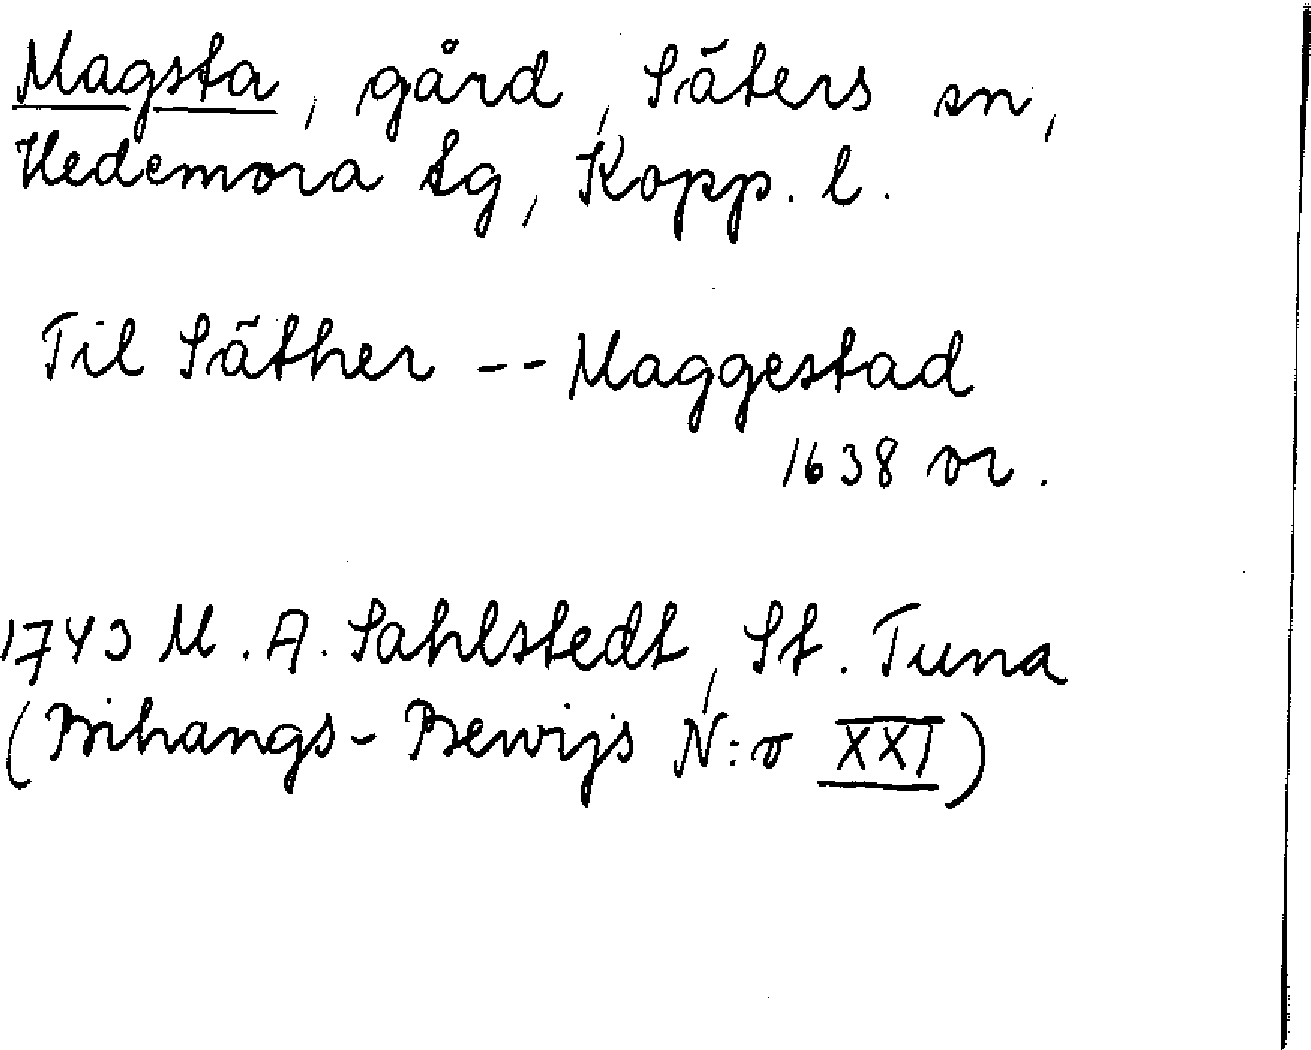 Magsta, gård, Säters sn,
Hedemora tg, Kopp. l.
Til Säther -- Maggestad
1638 or.
1743 M. A. Sahlstedt, St. Tuna
(Bihangs-Bewijs N:o XXI)